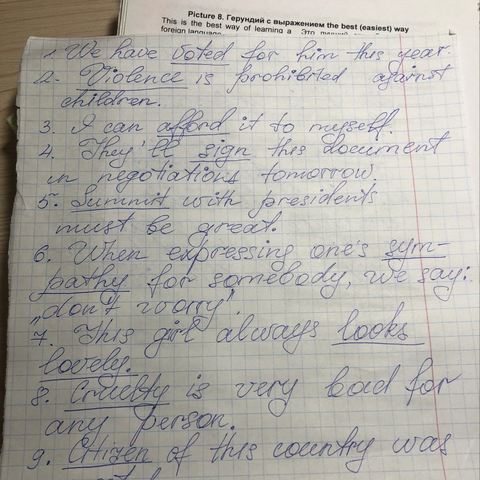 Picture 8. Герундий с выражением the best (easiest) way
This is the best way of learning a Это
foreign language.
1. We have voted for him this year.
2. Violence is prohibited against
children.
3. I can afford it to myself.
4. They'll sign this document
in negotiations tomorrow.
5. Summit with presidents
must be great.
6. When expressing one's sym-
pathy for somebody, we say:
„don't worry".
7. This girl always looks
lovely.
8. Cruelty is very bad for
any person.
9. Citizen of this country was